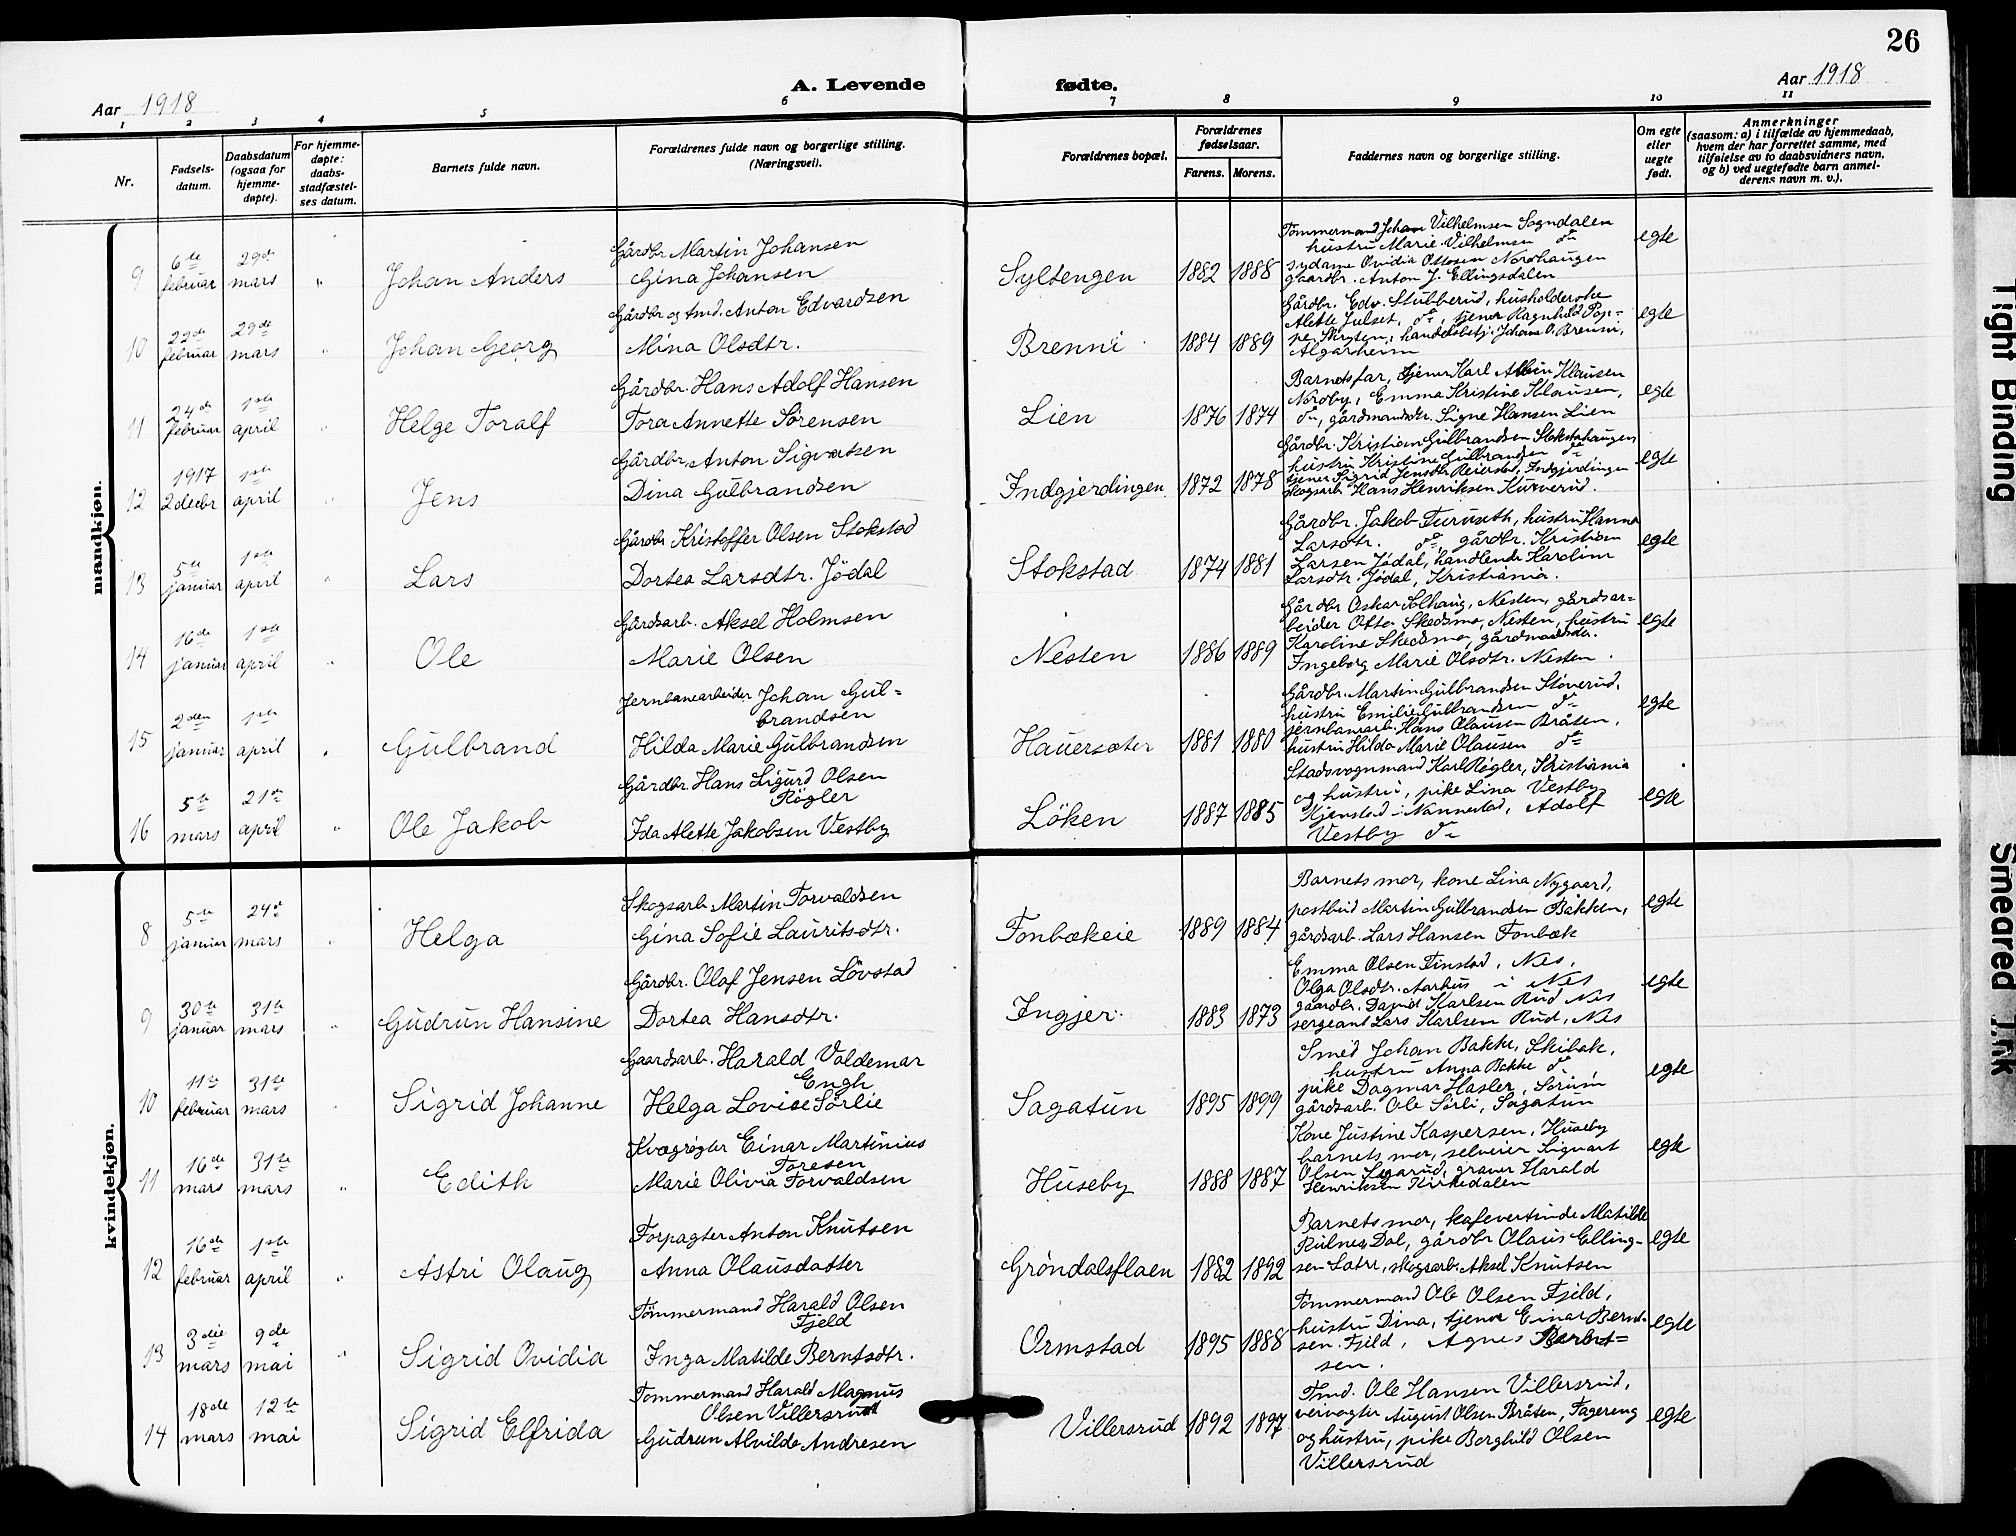 26
A. Levende fødte.
Aar 1918
Aar 1918
1 2 3 4 5 6 7 8 9 10 11
Nr.
Fødsels-
datum.
Daabsdatum
(ogsaa for
hjemme-
døpte).
For hjemme-
døpte:
daabs-
stadfæstel-
ses datum.
Barnets fulde navn.
Forældrenes fulde navn og borgerlige stilling.
(Næringsvei).
Forældrenes bopæl.
Forældrenes
fødselsaar.
Farens. Morens.
Faddernes navn og borgerlige stilling.
Om egte
eller
uegte
født.
Anmerkninger
(saasom: a) i tilfælde av hjemmedaab,
hvem der har forrettet samme, med
tilføielse av to daabsvidners navn,
og b) ved uegtefødte barn anmel-
derens navn m. v.).
mandkjøn.
9
6te
februar
29de
mars
"
Johan Anders
Gårdbr. Martin Johansen
Gina Johansen
Syltengen
1882 1888
Tømmermand Johan Vilhelmsen Sogndalen
hustru Marie Vilhelmsen do
sydame Ovidia Ottosen Nordhaugen
gaardbr. Anton J. Ellingsdalen
egte
10
22de
februar
29de
mars
"
Johan Georg
Gårdbr og tmd. Anton Edvardsen
Mina Olsdtr.
Brenni
1884 1889
Gårdbr. Edv. Stubberud, husholderske
Alette Julset, do, tjener Ragnhild Pop-
pe, handelsbetj. Johan O. Brenni,
Algarheim
egte
11
24de
februar
1ste
april
"
Helge Toralf
Gårdbr. Hans Adolf Hansen
Tora Annette Sørensen
Lien
1876 1874
Barnets far, tjener Karl Albin Klausen
Nordby, Emma Kristine Klausen,
do, gårdmandsdtr. Signe Hansen Lien
egte
12
1917
2 decbr
1ste
april
"
Jens
Gårdbr. Anton Sigvartsen
Dina Gulbrandsen
Indgjerdingen
1872 1878
Gårdbr. Kristian Gulbrandsen Stokstadhaugen
hustru Kristine Gulbrandsen do
tjener Sigrid Jensdtr. Reierstad, Indgjerdingen
skogsarb. Hans Henriksen Kurverud.
egte
13
5te
januar
1ste
april
"
Lars
Gårdbr Kristoffer Olsen Stokstad
Dortea Larsdtr. Jödal
Stokstad
1874 1881
Gårdbr. Jakob Furuseth, hustru Hanna
Larsdtr. do, gårdbr. Kristian
Larsen Jödal, handlende Karoline
Larsdtr. Jödal, Kristiania.
egte
14
16de
januar
1ste
april
"
Ole
Gårdsarb. Aksel Holmsen
Marie Olsen
Nesten
1886 1889
Gårdbr Oskar Solhaug, Nesten, gårdsar-
beider Otto Skedsmo, Nesten, hustru
Karoline Skedsmo, gårdmandsdtr.
Ingeborg Marie Olsdtr. Nesten.
egte
15
2den
januar
1ste
april
"
Gulbrand
Jernbanearbeider Johan Gul-
brandsen
Hilda Marie Gulbrandsen
Hauersæter
1881 1880
Gårdbr. Martin Gulbrandsen Støverud,
hustru Emilie Gulbrandsen do
jernbanearb. Hans Olausen Bråten,
hustru Hilda Marie Olausen do
egte
16
5te
mars
21de
april
"
Ole Jakob
Gårdbr. Hans Sigurd Olsen
Røgler
Ida Alette Jakobsen Vestby
Löken
1887 1885
Stadsvognmand Karl Røgler, Kristiania
og hustru, pike Lina Vestby
Kjenstad i Nannestad, Adolf
Vestby do
egte
kvindekjøn.
8
5te
januar
24de
mars
"
Helga
Skogsarb. Martin Torvaldsen
Gina Sofie Lauritsdtr.
Fonbækeie
1889 1884
Barnets mor, kone Lina Nygaard,
postbud Martin Gulbrandsen Bakken,
gårdsarb. Lars Hansen Fonbæk
egte
9
30te
januar
31te
mars
"
Gudrun Hansine
Gårdbr. Olaf Jensen Lövstad
Dortea Hansdtr.
Ingjer
1883 1873
Emma Olsen Finstad, Nes,
Olga Olsdtr. Aarhus i Nes
gaardbr. David Karlsen Rud Nes
sergeant Lars Karlsen Rud, Nes
egte
10
11te
februar
31te
mars
"
Sigrid Johanne
Gaardsarb. Harald Valdemar
Engh
Helga Lovise Sørlie
Sagatun
1895 1899
Smed Johan Bakke, Skibak,
hustru Anna Bakke do,
pike Dagmar Hasler, Sørum
gårdsarb. Ole Sørli, Sagatun
egte
11
16de
mars
31te
mars
"
Edith
Kvægrøgter Einar Martinius
Toresen
Marie Olivia Torvaldsen
Huseby
1888 1887
Kone Justine Kaspersen, Huseby
barnets mor, selveier Sigvart
Olsen Segarud, graver Harald
Henriksen Kirkedalen
egte
12
16de
februar
1ste
april
"
Astri Olaug
Forpagter Anton Knutsen
Anna Olausdatter
Gröndalsflaen
1882 1892
Barnets mor, kafevertinde Matilde
Rulnes, Dal, gårdbr Olaus Elling-
sen Satre, skogsarb. Aksel Knutsen
egte
13
3die
mars
9de
mai
"
Sigrid Ovidia
Tömmermand Harald Olsen
Fjeld
Inga Matilde Berntsdtr.
Ormstad
1895 1888
Tömmermand Ole Olsen Fjeld,
hustru Dina, tjener Einar Bernt-
sen Fjeld, Agnes Bernt-
sen.
egte
14
18de
mars
12te
mai
Sigrid Elfrida
Tømmermand Harald Magnus
Olsen Villersrud
Gudrun Alvilde Andresen
Villersrud
1892 1897
Tmd. Ole Hansen Villersrud,
veivogter August Olsen Bråten, Fagereng
og hustru, pike Borghild Olsen
Villersrud
egte
Tight Binding
Smeared Ink